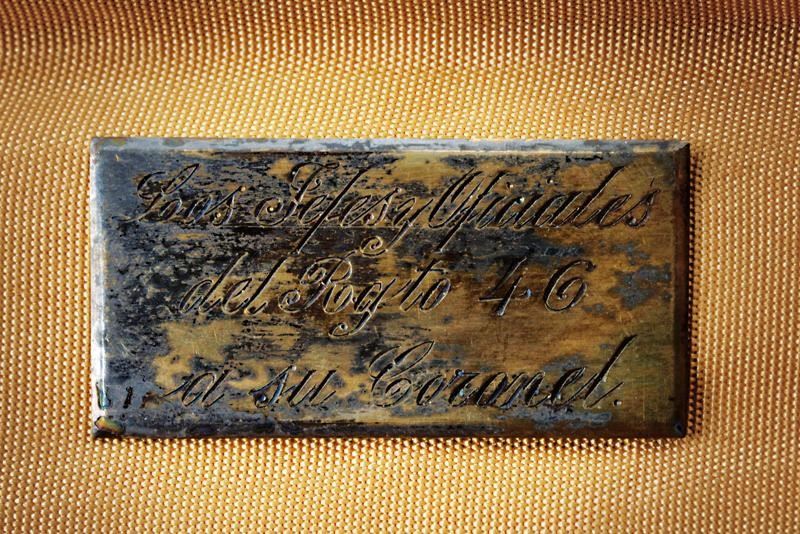 Los Jefes y Oficiales
del Rgto 4 C
a su Coronel.